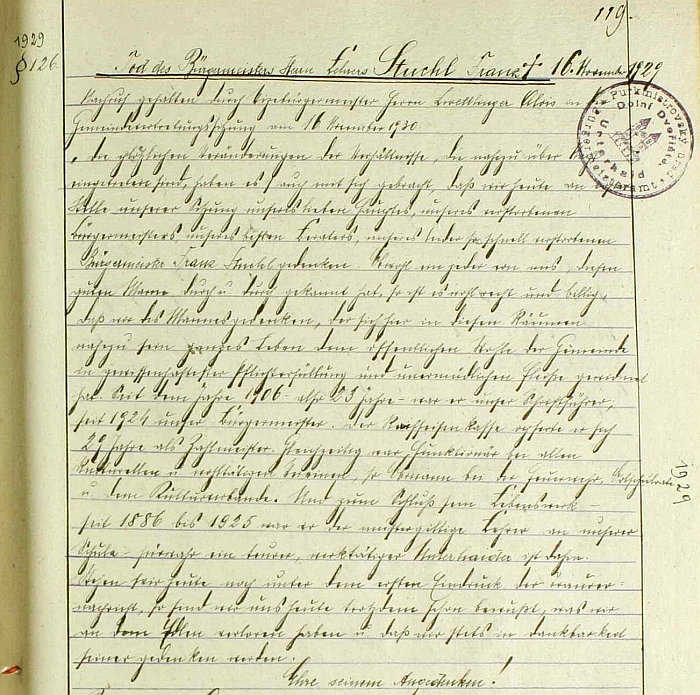 119.
1929
§ 126.
Tod des Bürgermeisters Herrn Lehrers Stuchl Franz † 16. November 1929
Nachruf gehalten durch Vizebürgermeister Herrn Alois in der
Gemeindevertretungssitzung am 16 November 1930
„Die plötzlichen Veränderungen der Verhältnisse, die nahezu über
eingetreten sind, haben es auch mit sich gebracht, daß wir heute an
Stelle unserer Sitzung unseres lieben Hauptes, unseres verstorbenen
Bürgermeisters, unseres besten Beraters, unseres leider so schnell verstorbenen
Bürgermeister Franz Stuchl gedenken. Obwohl ein jeder von uns, diesen
guten Mann durch u. durch gekannt hat, so ist es wohl recht und billig,
daß wir des Mannes gedenken, der sich hier in diesen Räumen
nahezu sein ganzes Leben dem öffentlichen Wohle der Gemeinde
in gewissenhaftester Pflichterfüllung und unermüdlichem Fleiße gewidmet
hat. Seit dem Jahre 1906 - also 23 Jahre - war er unser Schriftführer,
seit 1924 unser Bürgermeister. Der Raiffeisenkasse opferte er sich
29 Jahre als Zahlmeister. Gleichzeitig war Funktionär bei allen
kulturellen u. wohltätigen Vereinen, so Obmann bei der Feuerwehr, Ortsschulrate
u. dem Kulturverbande. Und zum Schluß sein Lebenswerk -
seit 1886 bis 1925 war er der mustergiltige Lehrer an unserer
Schule - fürwahr ein teurer, werktätiger Unterhaider ist dahin.
Stehen wir heute noch unter dem ersten Eindruck der Trauer-
nachricht, so sind wir uns heute trotzdem schon bewußt, was wir
an dem Edlen verloren haben u. daß wir stets in Dankbarkeit
seiner gedenken werden.
Ehre seinem Angedenken!
Purkmistrovský úřad
Dolní Dvořiště
Unterhaid
Bürgermeisteramt
1929